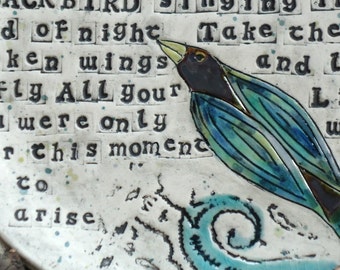 ACKBIRD singing i
d of night Take the
ken wings and l
fly All your L
u were only w
r this moment
to
arise